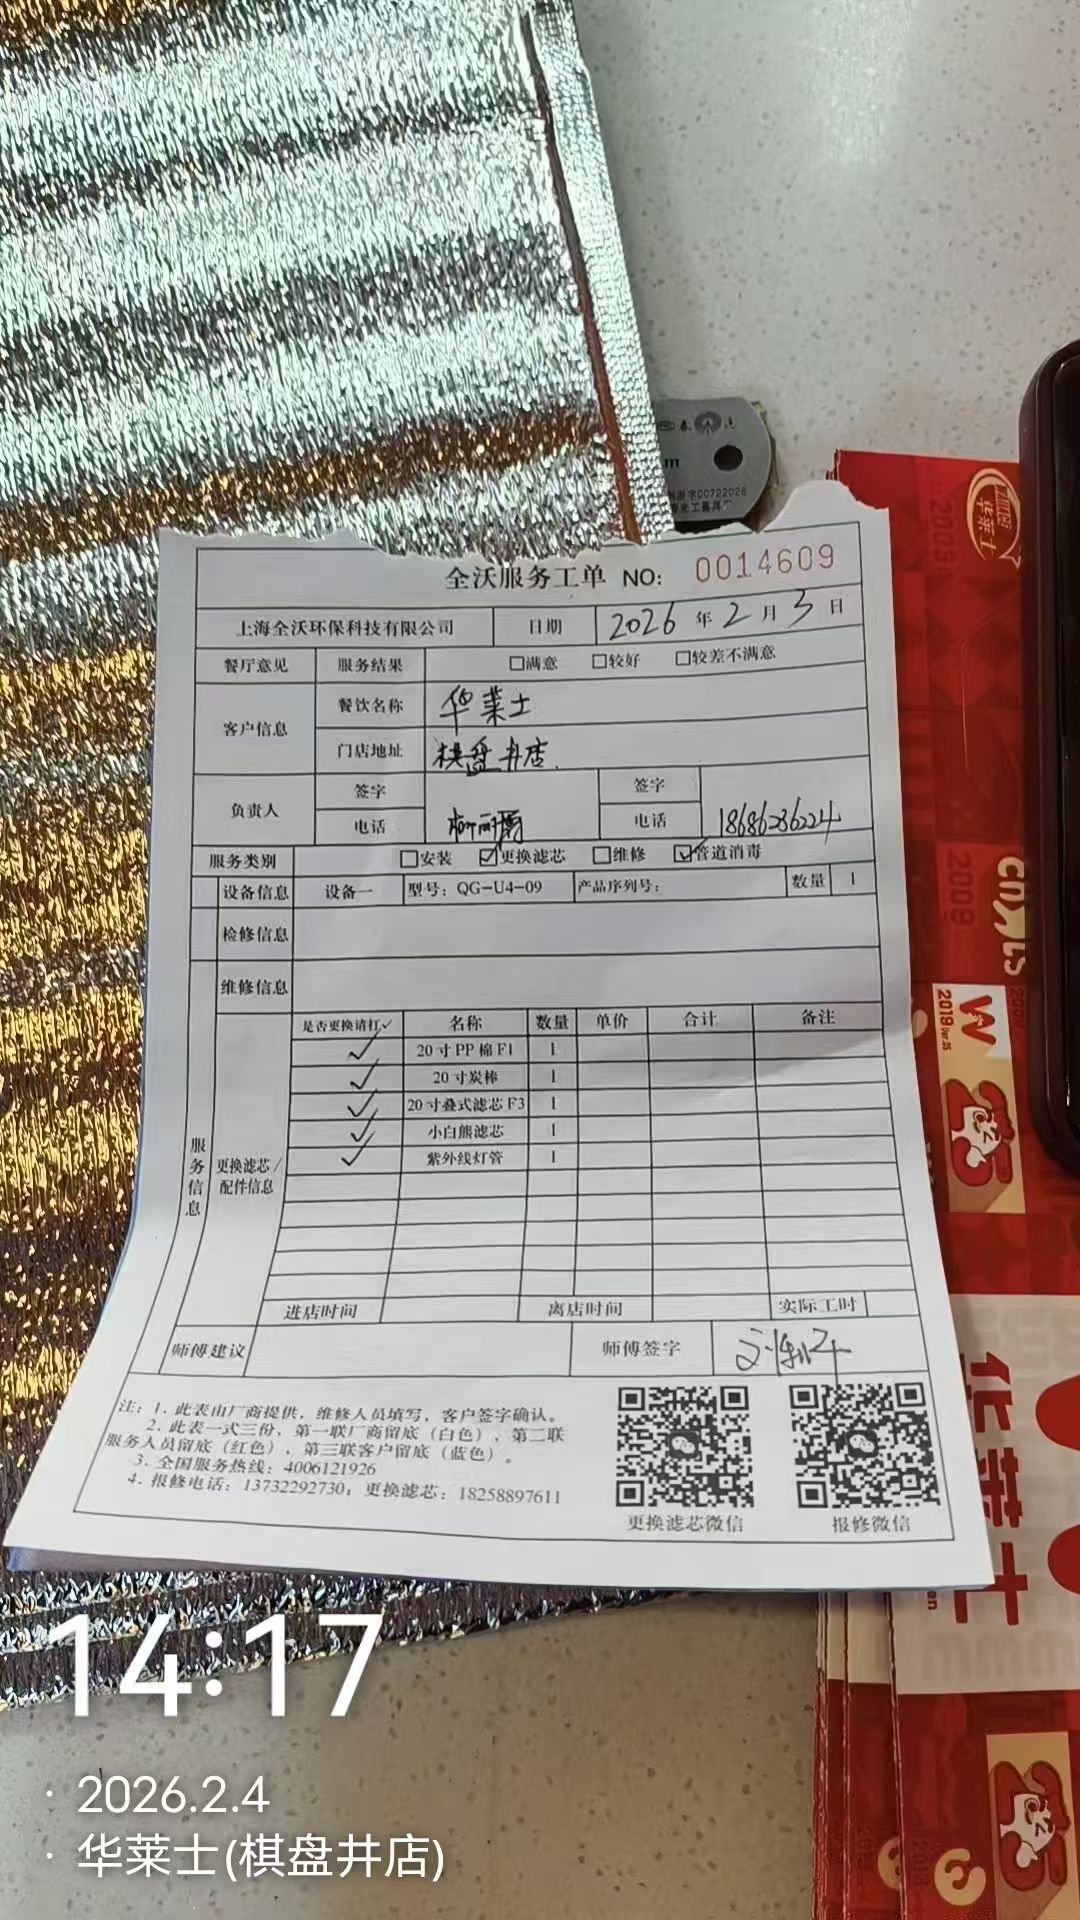 全沃服务工单 NO: 0014609
上海全沃环保科技有限公司 日期 2026 年 2 月 3 日
餐厅意见 服务结果 □满意 □较好 □较差不满意
客户信息 餐饮名称 华莱士
门店地址 棋盘井店
负责人 签字 签字
电话 电话 18686236224
服务类别 □安装 ☑更换滤芯 □维修 ☑管道消毒
设备信息 设备一 型号：QG-U4-09 产品序列号： 数量 1
检修信息
维修信息
服务信息
更换滤芯/配件信息
是否更换请打✓ 名称 数量 单价 合计 备注
✓ 20寸PP棉F1 1
✓ 20寸炭棒 1
✓ 20寸叠式滤芯F3 1
✓ 小白熊滤芯 1
✓ 紫外线灯管 1
进店时间 离店时间 实际工时
师傅建议 师傅签字
注：1、此表由厂商提供，维修人员填写，客户签字确认。
2、此表一式三份，第一联厂商留底（白色），第二联
服务人员留底（红色），第三联客户留底（蓝色）。
3、全国服务热线：4006121926
4、报修电话：13732292730；更换滤芯：18258897611
更换滤芯微信 报修微信
华莱士
2003
2009
CNHLS
2019
W
25
华莱士
25
14:17
· 2026.2.4
· 华莱士(棋盘井店)